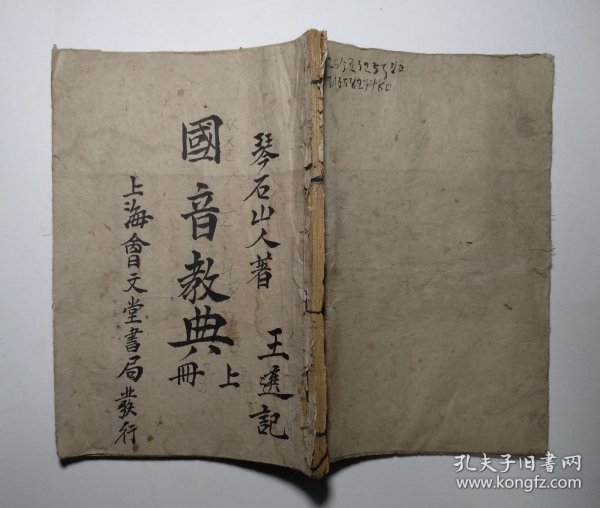 琴石山人著
王選記
國音教典
上冊
上海會文堂書局發行
孔夫子旧书网
www.kongfz.com